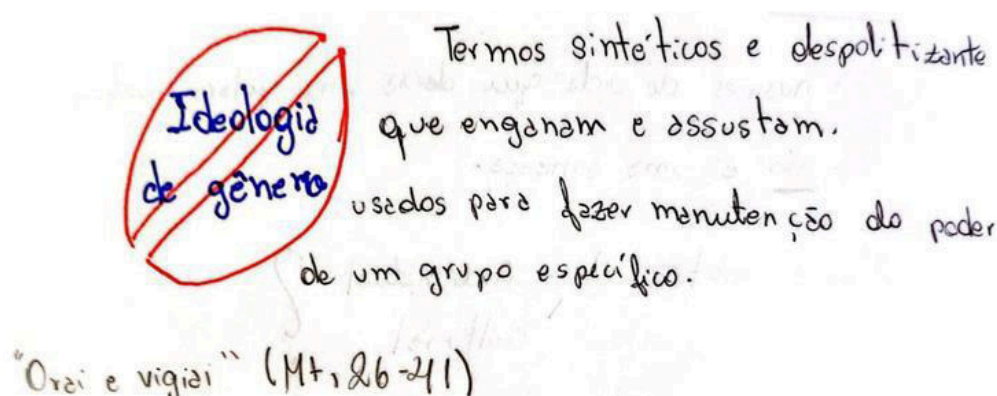 Ideologia
de gênero
Termos sintéticos e despolitizante
que enganam e assustam.
usados para fazer manutenção do poder
de um grupo específico.
"Orai e vigiai" (Mt, 26-41)